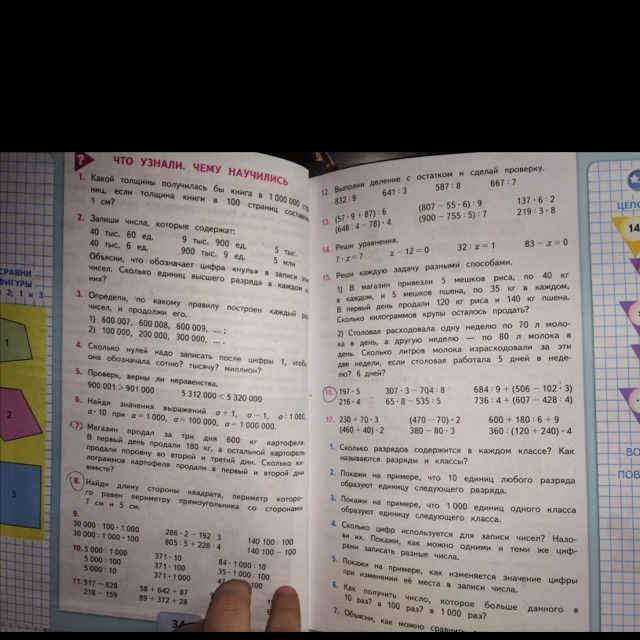 ?
ЧТО УЗНАЛИ. ЧЕМУ НАУЧИЛИСЬ
1. Какой толщины получилась бы книга в 1 000 000
ниц, если толщина книги в 100 страниц
1 см?
2. Запиши числа, которые содержат:
40 тыс. 60 ед. 9 тыс. 900 ед. 5 тыс.
40 тыс. 6 ед. 900 тыс. 9 ед. 5 млн
Объясни, что обозначает цифра «нуль» в записи
чисел. Сколько единиц высшего разряда в каждом
них?
3. Определи, по какому правилу построен каждый
чисел, и продолжи его.
1) 600 007, 600 008, 600 009, ... ;
2) 100 000, 200 000, 300 000, ... .
4. Сколько нулей надо записать после цифры 1, чтобы
она обозначала сотню? тысячу? миллион?
5. Проверь, верны ли неравенства.
900 001 > 901 000 5 312 000 < 5 320 000
6. Найди значения выражений a + 1, a − 1, a : 1 000,
a · 10 при a = 1 000, a = 100 000, a = 1 000 000.
7. Магазин продал за три дня 600 кг картофеля.
В первый день продали 180 кг, а остальной картофель
продали поровну во второй и третий дни. Сколько ки-
лограммов картофеля продали в первый и второй дни
вместе?
8. Найди длину стороны квадрата, периметр которо-
го равен периметру прямоугольника со сторонами
7 см и 5 см.
9.
30 000 : 100 · 1 000 286 · 2 − 192 : 3 140 100 : 100
30 000 : 1 000 · 100 805 : 5 + 228 : 4 140 100 − 100
10. 5 000 : 1 000 371 · 10 84 · 1 000 : 10
5 000 : 100 371 · 100 35 · 1 000 : 100
5 000 : 10 371 · 1 000
11. 917 − 828 58 + 642 + 87
218 − 159 89 + 372 + 28
34
12. Выполни деление с остатком и сделай проверку.
832 : 9 641 : 3 587 : 8 667 : 7
13. (57 · 9 + 87) : 6 (807 − 55 · 6) : 9 137 · 6 : 2
(648 : 4 − 78) · 4 (900 − 755 : 5) : 7 219 : 3 · 8
14. Реши уравнения.
7 · x = 7 x − 12 = 0 32 : x = 1 83 − x = 0
15. Реши каждую задачу разными способами.
1) В магазин привезли 5 мешков риса, по 40 кг
в каждом, и 5 мешков пшена, по 35 кг в каждом.
В первый день продали 120 кг риса и 140 кг пшена.
Сколько килограммов крупы осталось продать?
2) Столовая расходовала одну неделю по 70 л моло-
ка в день, а другую неделю — по 80 л молока в
день. Сколько литров молока израсходовали за эти
две недели, если столовая работала 5 дней в неде-
лю? 6 дней?
16. 197 · 5 307 · 3 − 704 : 8 684 : 9 + (506 − 102 · 3)
216 · 4 65 · 8 − 535 : 5 736 : 4 + (607 − 428 : 4)
17. 230 + 70 · 3 (470 − 70) · 2 600 + 180 : 6 + 9
(460 + 40) · 2 380 − 80 · 3 360 : (120 + 240) · 4
1. Сколько разрядов содержится в каждом классе? Как
называются разряды и классы?
2. Покажи на примере, что 10 единиц любого разряда
образуют единицу следующего разряда.
3. Покажи на примере, что 1 000 единиц одного класса
образуют единицу следующего класса.
4. Сколько цифр используется для записи чисел? Назо-
ви их. Покажи, как можно одними и теми же циф-
рами записать разные числа.
5. Покажи на примере, как изменяется значение цифры
при изменении её места в записи числа.
6. Как получить число, которое больше данного в
10 раз? в 100 раз? в 1 000 раз?
7. Объясни, как можно
СРАВНИ
ФИГУРЫ
2; 1 и 3
1
2
3
ЦЕПО
14
ВО
ПОВ